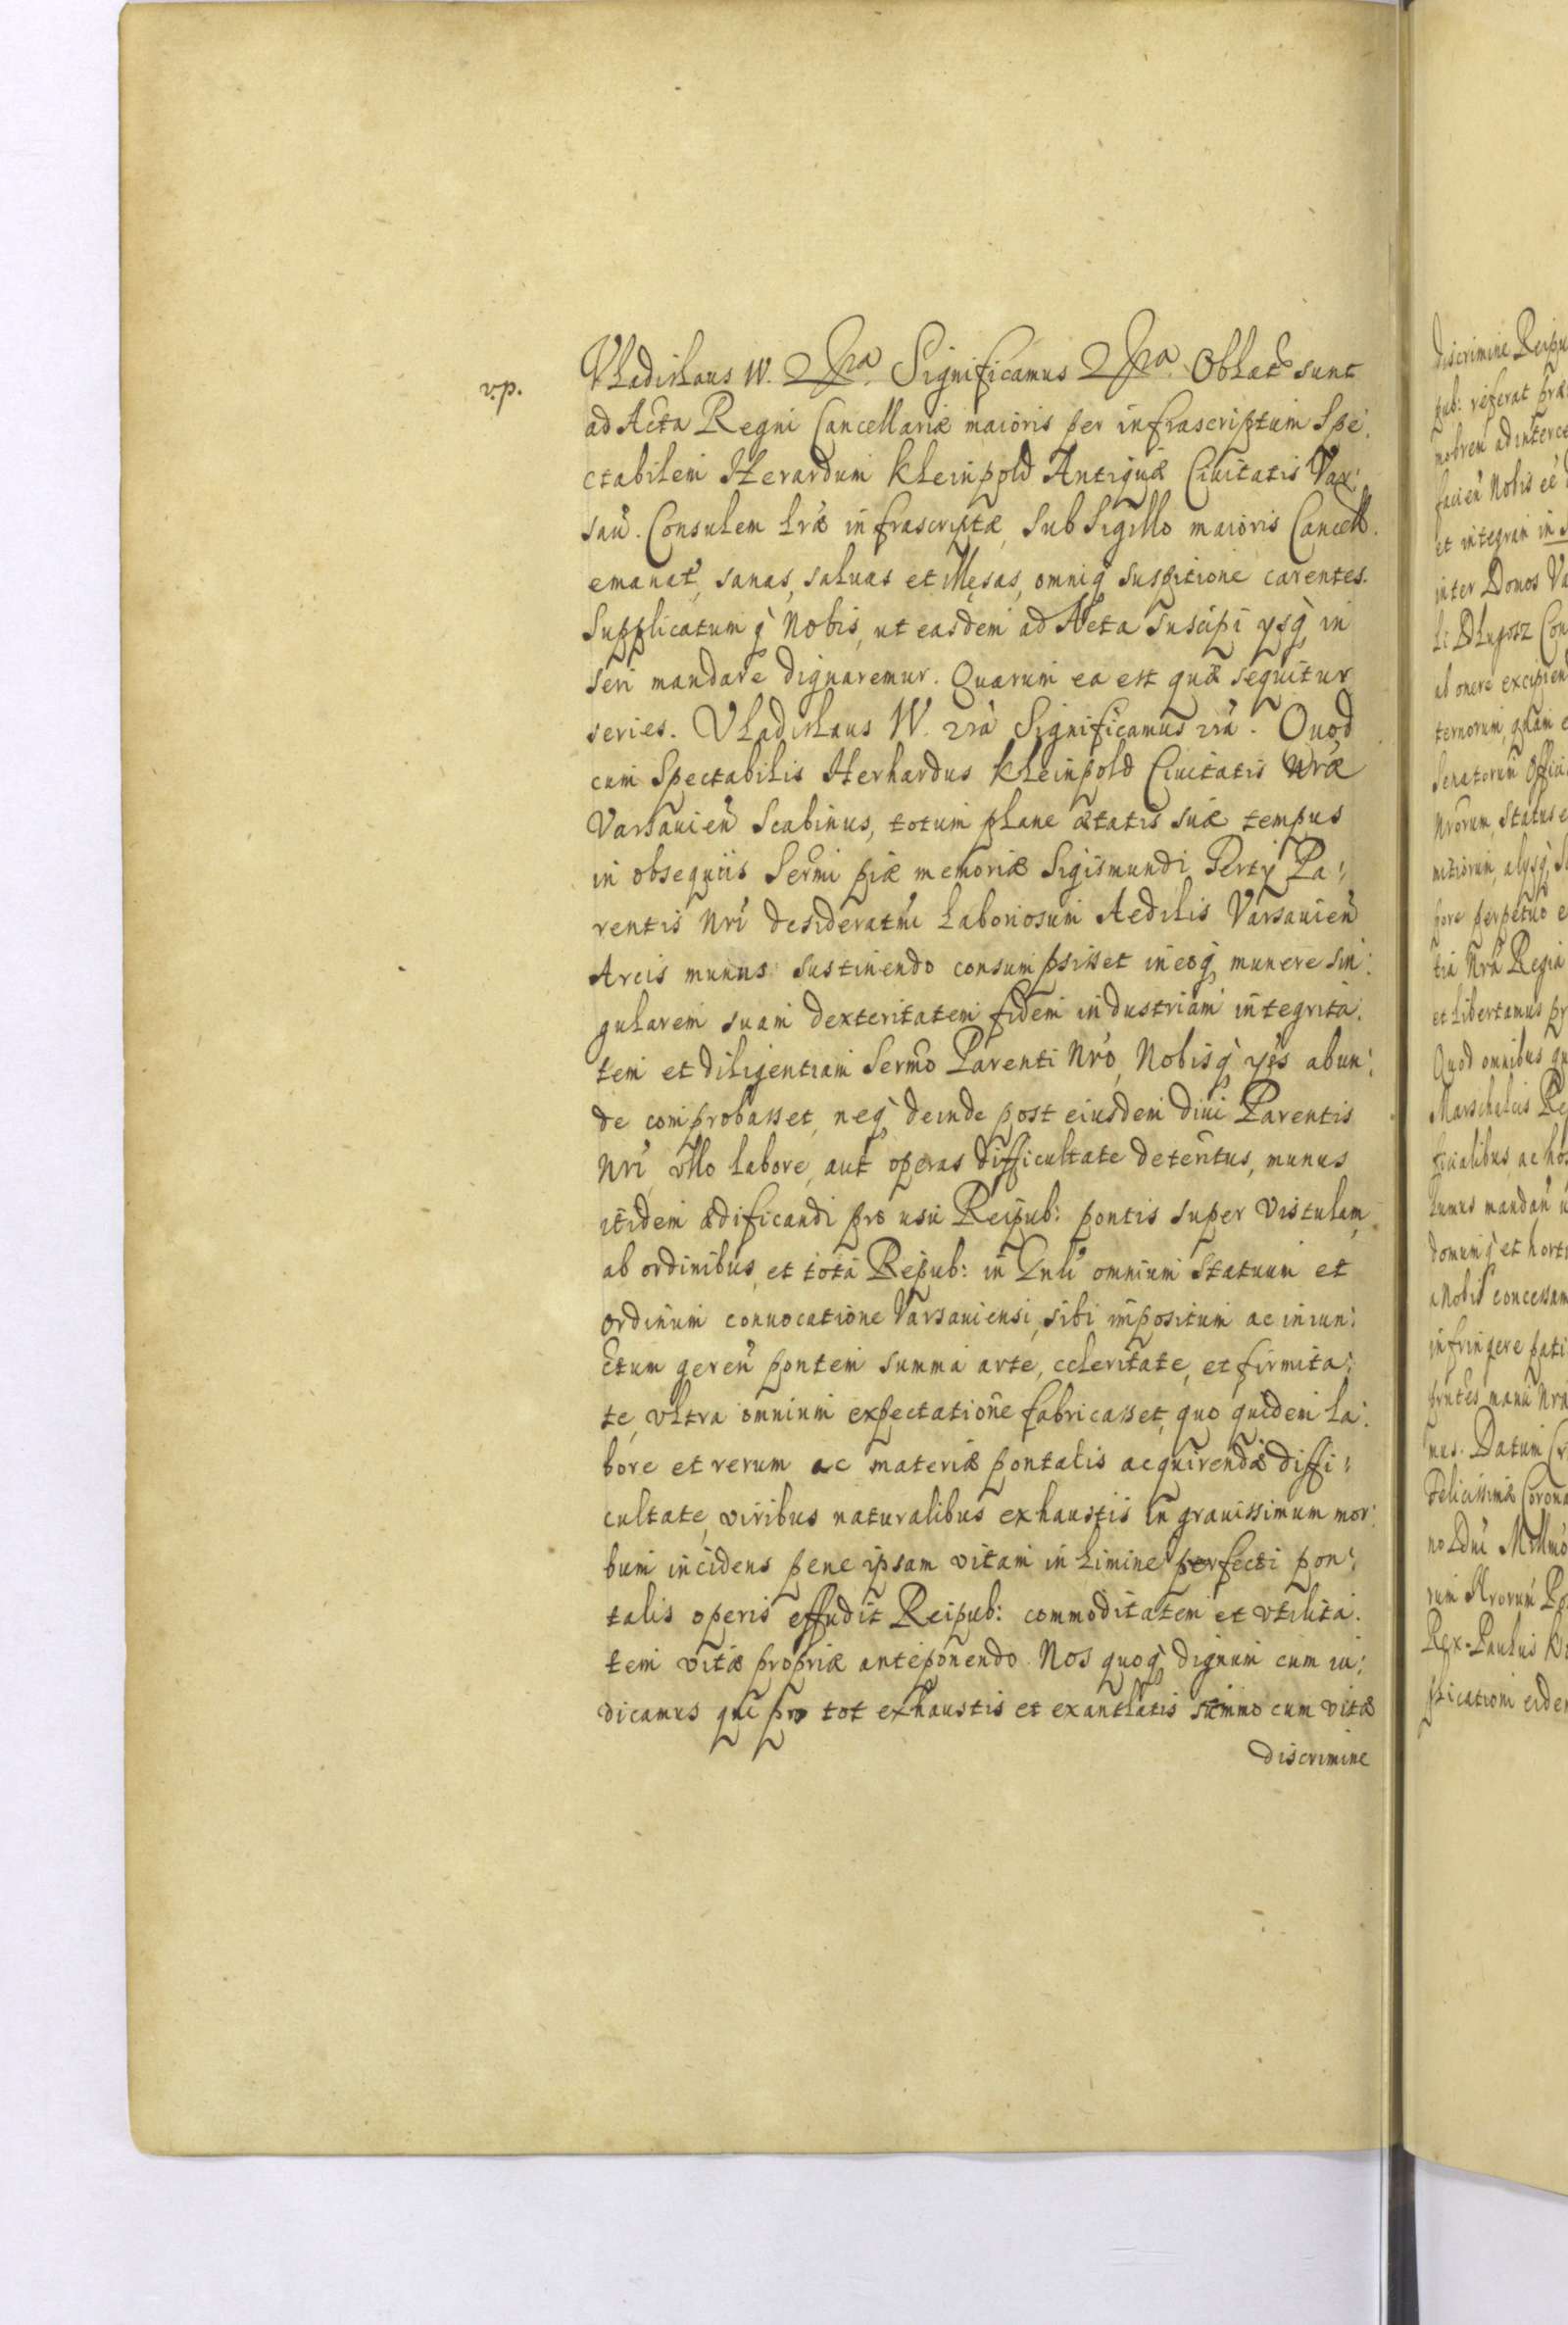 v.p.
Vladislaus IV. Significamus Oblatæ sunt
ad Acta Regni Cancellariæ maioris per infrascriptum Spe:
ctabilem Herardum Kleinpold Antiquæ Civitatis Var:
sauꝰ. Consulem lrǽ infrascriptæ, sub Sigillo maioris Cancell.
emanatꝰ, sanas, saluas et illęsas, omniq̀ suspitione carentes.
Supplicatum q̀ Nobis, ut easdem ad Acta suscipi ysq̀ in
seri mandare dignaremur. Quarum ea est quæ sequitur
series. Vladislaus IV. Significamus. Quod
cum Spectabilis Herhardus Kleinpold Ciuitatis Nrǽ
Varsauień Scabinus, totum plane ætatis suæ tempus
in obsequiis Sermi piæ memoriæ Sigismundi Tertÿ Pa:
rentis Nrí desideratmi laboriosum Aedilis Varsauień
Arcis munus sustinendo consumpsisset in eoq̀ munere sin:
gularem suam dexteritatem fidem industriam integrita:
tem et diligentiam Sermo Parenti Nró, Nobisq̀ yps abun:
de comprobasset, neq̀ deinde post eiusdem diui Parentis
Nrí vllo labore, aut operas difficultate detentus, munus
itidem ædificandi pro usu Reipub: pontis super Vistulam
ab ordinibus, et tota Repub: in Gnli omnium statuum et
ordinum conuocatione Varsauiensi, sibi impositum ac iniun:
ctum gereń pontem summa arte, celeritate, et firmita:
te, vltra omnium expectatione fabricasset, quo quidem la:
bore et rerum ac materiæ pontalis acquirendæ diffi:
cultate, viribus naturalibus exhaustis in grauissimum mor:
bum incidens pene ipsam vitam in limine perfecti pon:
talis operis effudit Reipub: commoditatem et vtilita:
tem vitæ propriæ anteponendo. Nos quoq̀ dignum eum iu:
dicamus qui pro tot exhaustis et exantlatis summo cum vitæ
discrimine
discrimine Reipu
pub: referat præ
mobrem ad interce
facień Nobis
et integram in
inter Domos Va
Dlugosz Con
ab onere excipien
ternorum, quam e
Senatorum Offici
Nrorum, status e
fore perpetuo e
tia Nrá Regia
et libertamus pr
Quod omnibus qu
Marschalcis Re
domum q̀ et hort
a Nobis concessam
infringere pati
manu Nrá
mus. Datum Cr
Felicissimæ Corona
rum Nrorum
Rex. Paulus
plicationi eidem